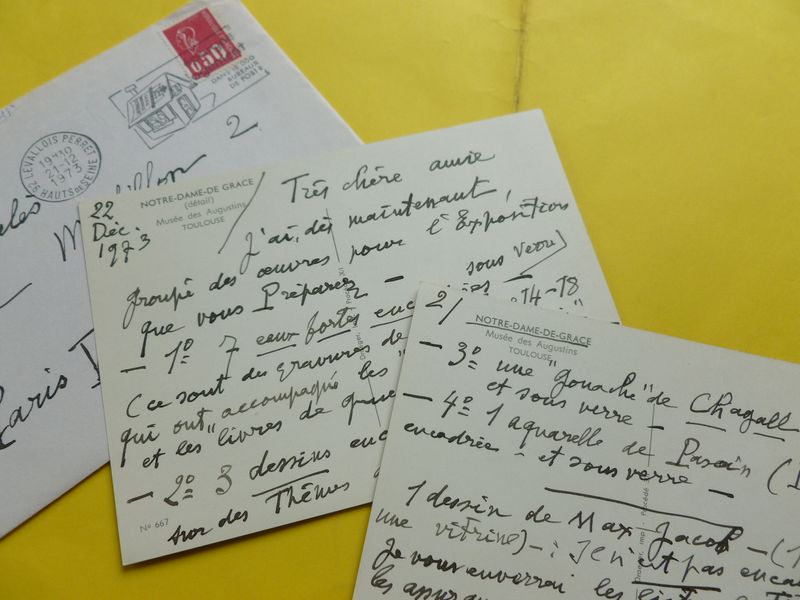 0.50
DANS
BUREAUX
DE POSTE
92 LEVALLOIS PERRET
19H30
21-12
1973
HAUTS DE SEINE
2
Paris
NOTRE-DAME-DE GRACE
(détail)
Musée des Augustins
TOULOUSE
22
Déc.
1973
Très chère amie
J'ai, dès maintenant,
groupé des œuvres pour l'Exposition
que vous Préparez —
sous verre
— 1º 7 eaux fortes
14-18
(ce sont des gravures de
qui ont accompagné les "
et les livres de
— 2º 3 dessins
sur des Thèmes
Nº 667
2/
NOTRE-DAME-DE-GRACE
Musée des Augustins
TOULOUSE
— 3º une "gouache" de Chagall
et sous verre —
— 4º 1 aquarelle de Pascin (
encadrée - et sous verre —
1 dessin de Max Jacob — (
une vitrine) -
pas
Je vous enverrai les
les